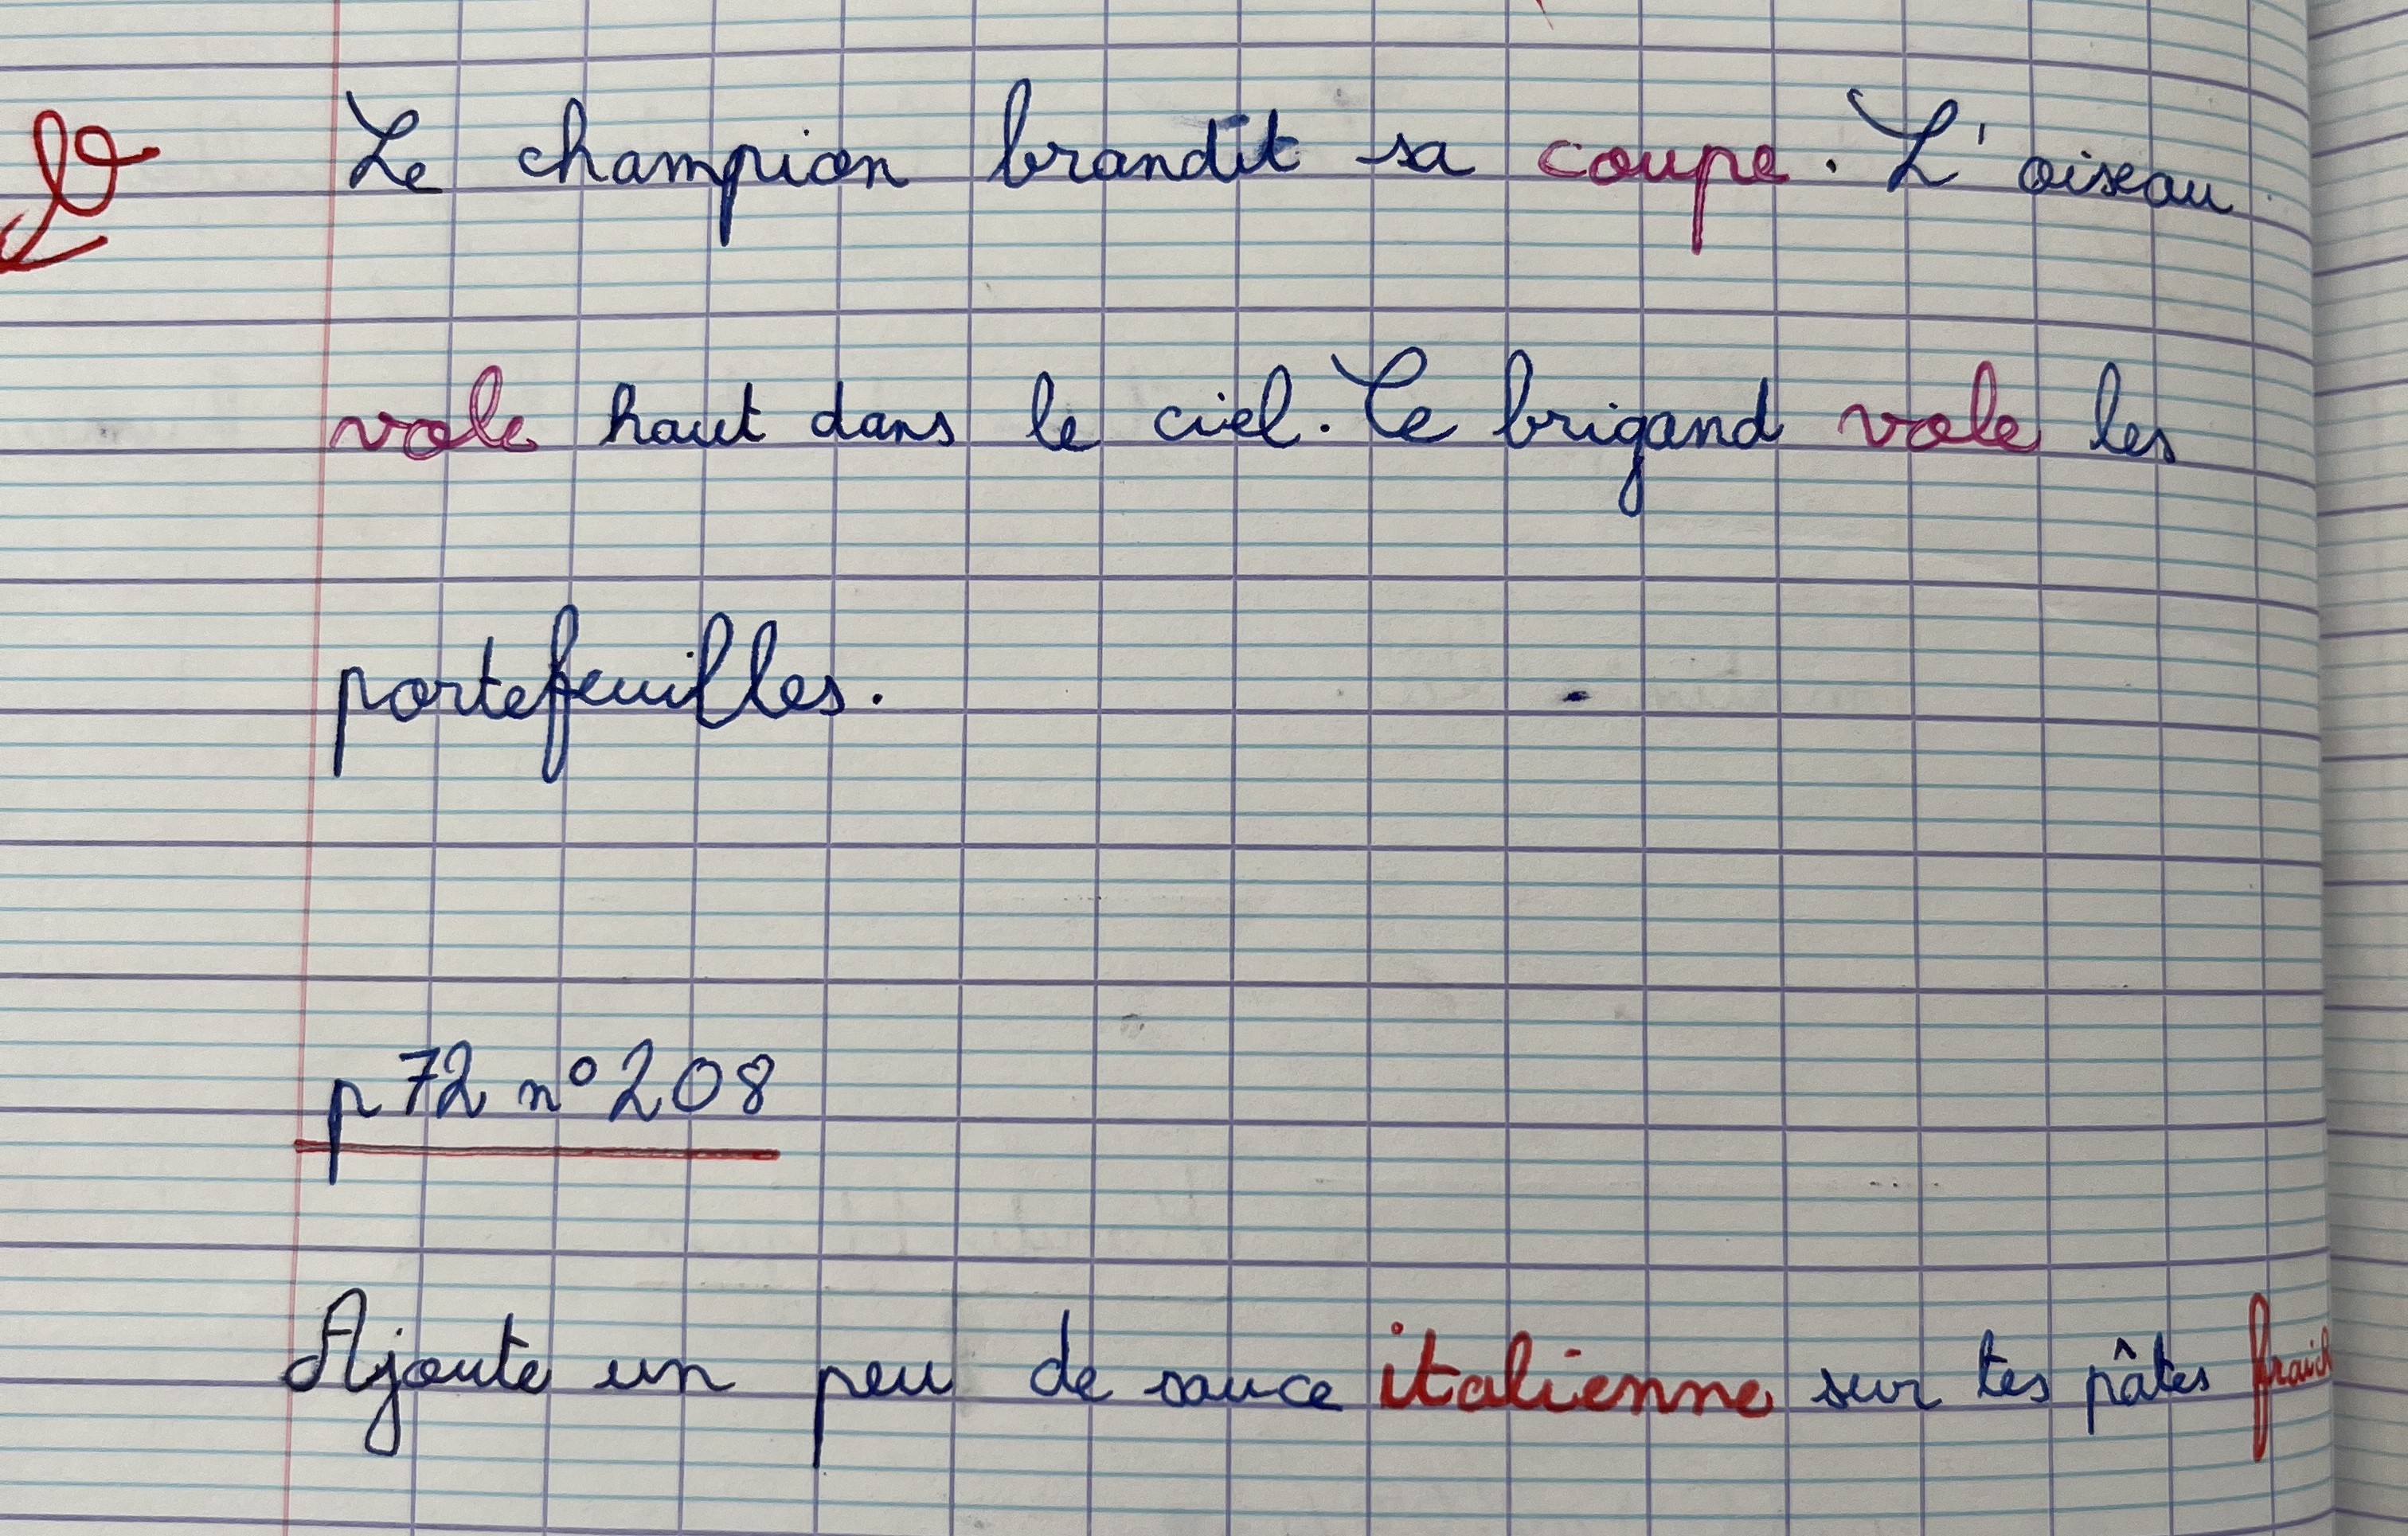 Le champion brandit sa coupe. L'oiseau
vole haut dans le ciel. Le brigand vole les
portefeuilles.
p 72 n° 208
Ajoute un peu de sauce italienne sur tes pâtes fraich